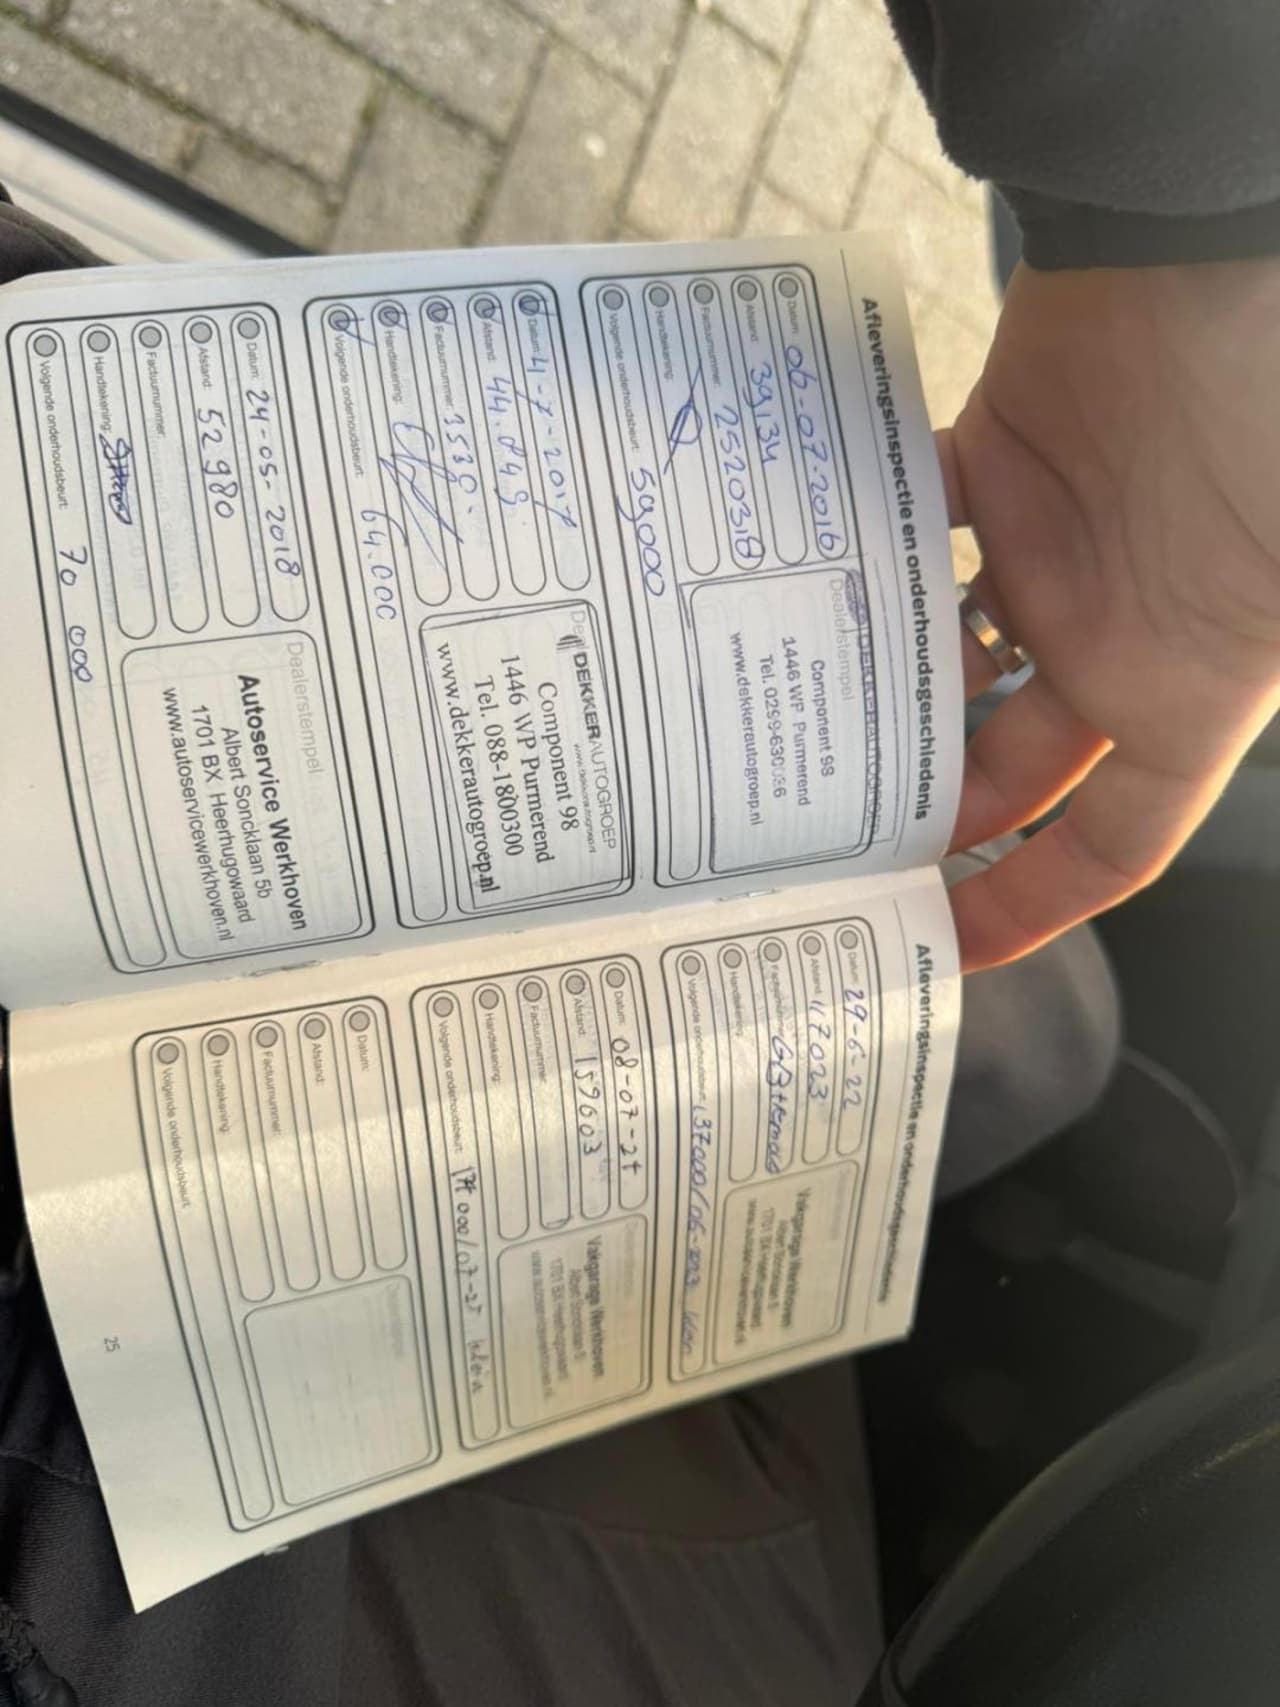 Afleveringsinspectie en onderhoudsgeschiedenis
Datum: 06-07-2016
Afstand: 39134
Factuurnummer: 2520318
Handtekening:
Volgende onderhoudsbeurt: 59000
Dealerstempel
DEKKERAUTOGROEP
Component 98
1446 WP Purmerend
Tel. 0299-630036
www.dekkerautogroep.nl
Datum: 4-7-2017
Afstand: 44.849
Factuurnummer: 3530.
Handtekening:
Volgende onderhoudsbeurt: 64.000
DEKKERAUTOGROEP
Component 98
1446 WP Purmerend
Tel. 088-1800300
www.dekkerautogroep.nl
Datum: 24-05-2018
Afstand: 52980
Factuurnummer:
Handtekening:
Volgende onderhoudsbeurt: 70 000
Dealerstempel
Autoservice Werkhoven
Albert Soncklaan 5b
1701 BX Heerhugowaard
www.autoservicewerkhoven.nl
Afleveringsinspectie en onderhoudsgeschiedenis
Datum: 29-6-22
Afstand: 117023
Factuurnummer:
Handtekening:
Volgende onderhoudsbeurt: 137000/06-2023
Vakgarage Werkhoven
Albert Soncklaan 5
1701 BX Heerhugowaard
Datum: 08-07-24
Afstand: 159603
Factuurnummer:
Handtekening:
Volgende onderhoudsbeurt: 174 000/07-25 klein
Vakgarage Werkhoven
Albert Soncklaan 5
1701 BX Heerhugowaard
Datum:
Afstand:
Factuurnummer:
Handtekening:
Volgende onderhoudsbeurt:
25